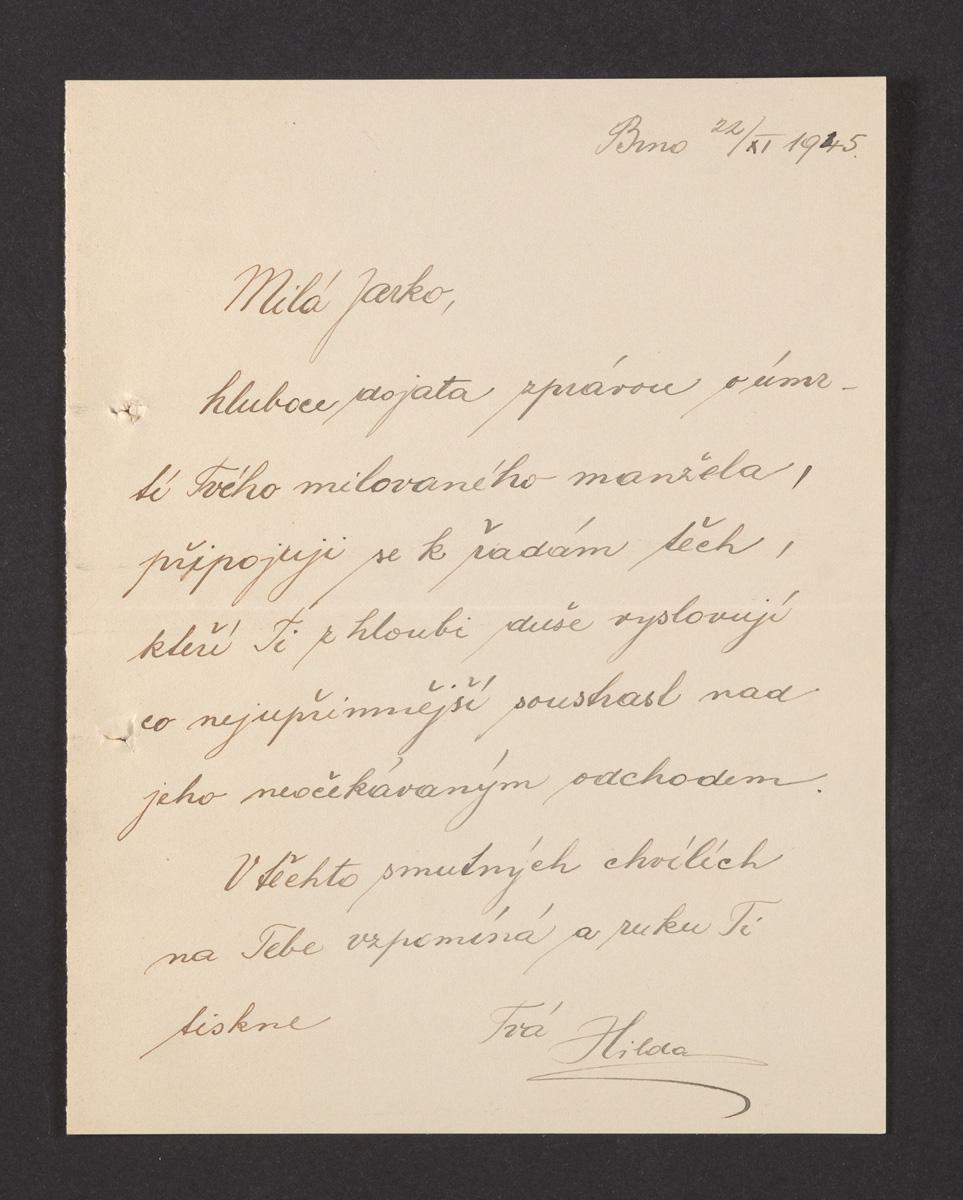 Brno 22/XI 1945.
Milá Jarko,
hluboce dojata zprávou o úmr-
tí Tvého milovaného manžela,
připojuji se k řadám těch,
kteří Ti z hloubi duše vyslovují
co nejupřimnější soustrast nad
jeho neočekávaným odchodem.
V těchto smutných chvílích
na Tebe vzpomíná a ruku Ti
tiskne Tvá Hilda